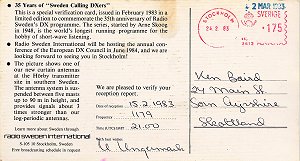 35 Years of "Sweden Calling DXers"
This is a special verification card, issued in February 1983 in
a limited edition to commemorate the 35th anniversary of Radio
Sweden's DX programme. The series, started by Arne Skoog
in 1948, is the world's longest running programme for the
hobby of short-wave listening.
Radio Sweden International will be hosting the annual con-
ference of the European DX Council in June 1984, and we are
looking forward to seeing you in Stockholm!
The picture shows one of
our new curtain antennas
at the Hörby transmitter
site in southern Sweden.
The antenna system is sus-
pended between five masts
up to 90 m in height, and
provides signals about 3
times stronger than our
log-periodic antennas.
Learn more about Sweden through
radio sweden international
S-105 10 Stockholm, Sweden
Free broadcasting schedule on request
We are pleased to verify your
reception report.
Date of reception 15.2.1983
Frequency 1179
Time (UTC/GMT) 21.00
STOCKHOLM
24.2.83
2 MAR 1983
SVERIGE
175
Ken Baird
24 Main St
Sorn Ayrshire
Scotland